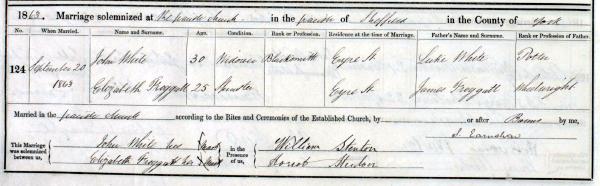 1863. Marriage solemnized at the parish church in the parish of Sheffield in the County of York
No. When Married. Name and Surname. Age. Condition. Rank or Profession. Residence at the time of Marriage. Father's Name and Surname. Rank or Profession of Father.
124 September 20 1863 John White 30 Widower Blacksmith Eyre St. Luke White Potter
Elizabeth Froggatt 25 Spinster Eyre St. James Froggatt Wheelwright
Married in the parish church according to the Rites and Ceremonies of the Established Church, by or after Banns by me,
J. Earnshaw
This Marriage was solemnized between us, John White his mark in the Presence of us, William Stenton
Elizabeth Froggatt her mark Harriet